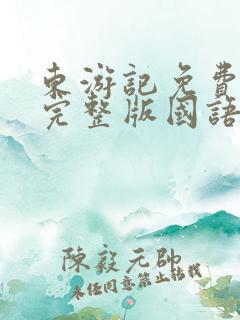 東游記免費
完整版國語
陳毅元帥
未经同意禁止转载